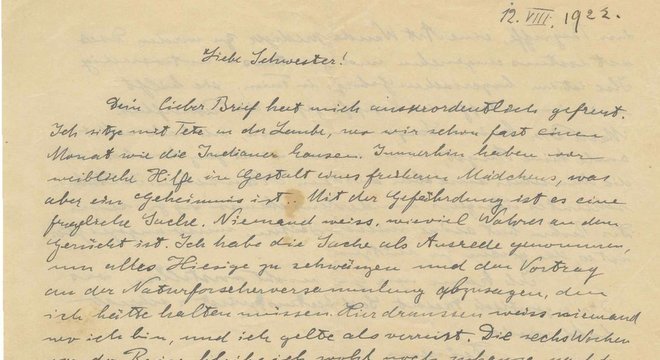 12. VIII. 1922.
Liebe Schwester!
Dein lieber Brief hat mich ausserordentlich gefreut.
Ich sitze mit Tete in der Laube, wo wir schon fast einen
Monat wie die Indianer hausen. Immerhin haben wir
weibliche Hilfe in Gestalt eines früheren Mädchens, was
aber ein Geheimnis ist. Mit der Gefährdung ist es eine
fragliche Sache. Niemand weiss, wieviel Wahres an dem
Gerücht ist. Ich habe die Sache als Ausrede genommen,
um alles Hiesige zu schwänzen und den Vortrag
an der Naturforscherversammlung abzusagen, den
ich hätte halten müssen. Hier draussen weiss niemand
wo ich bin, und ich gelte als verreist. Die sechs Wochen